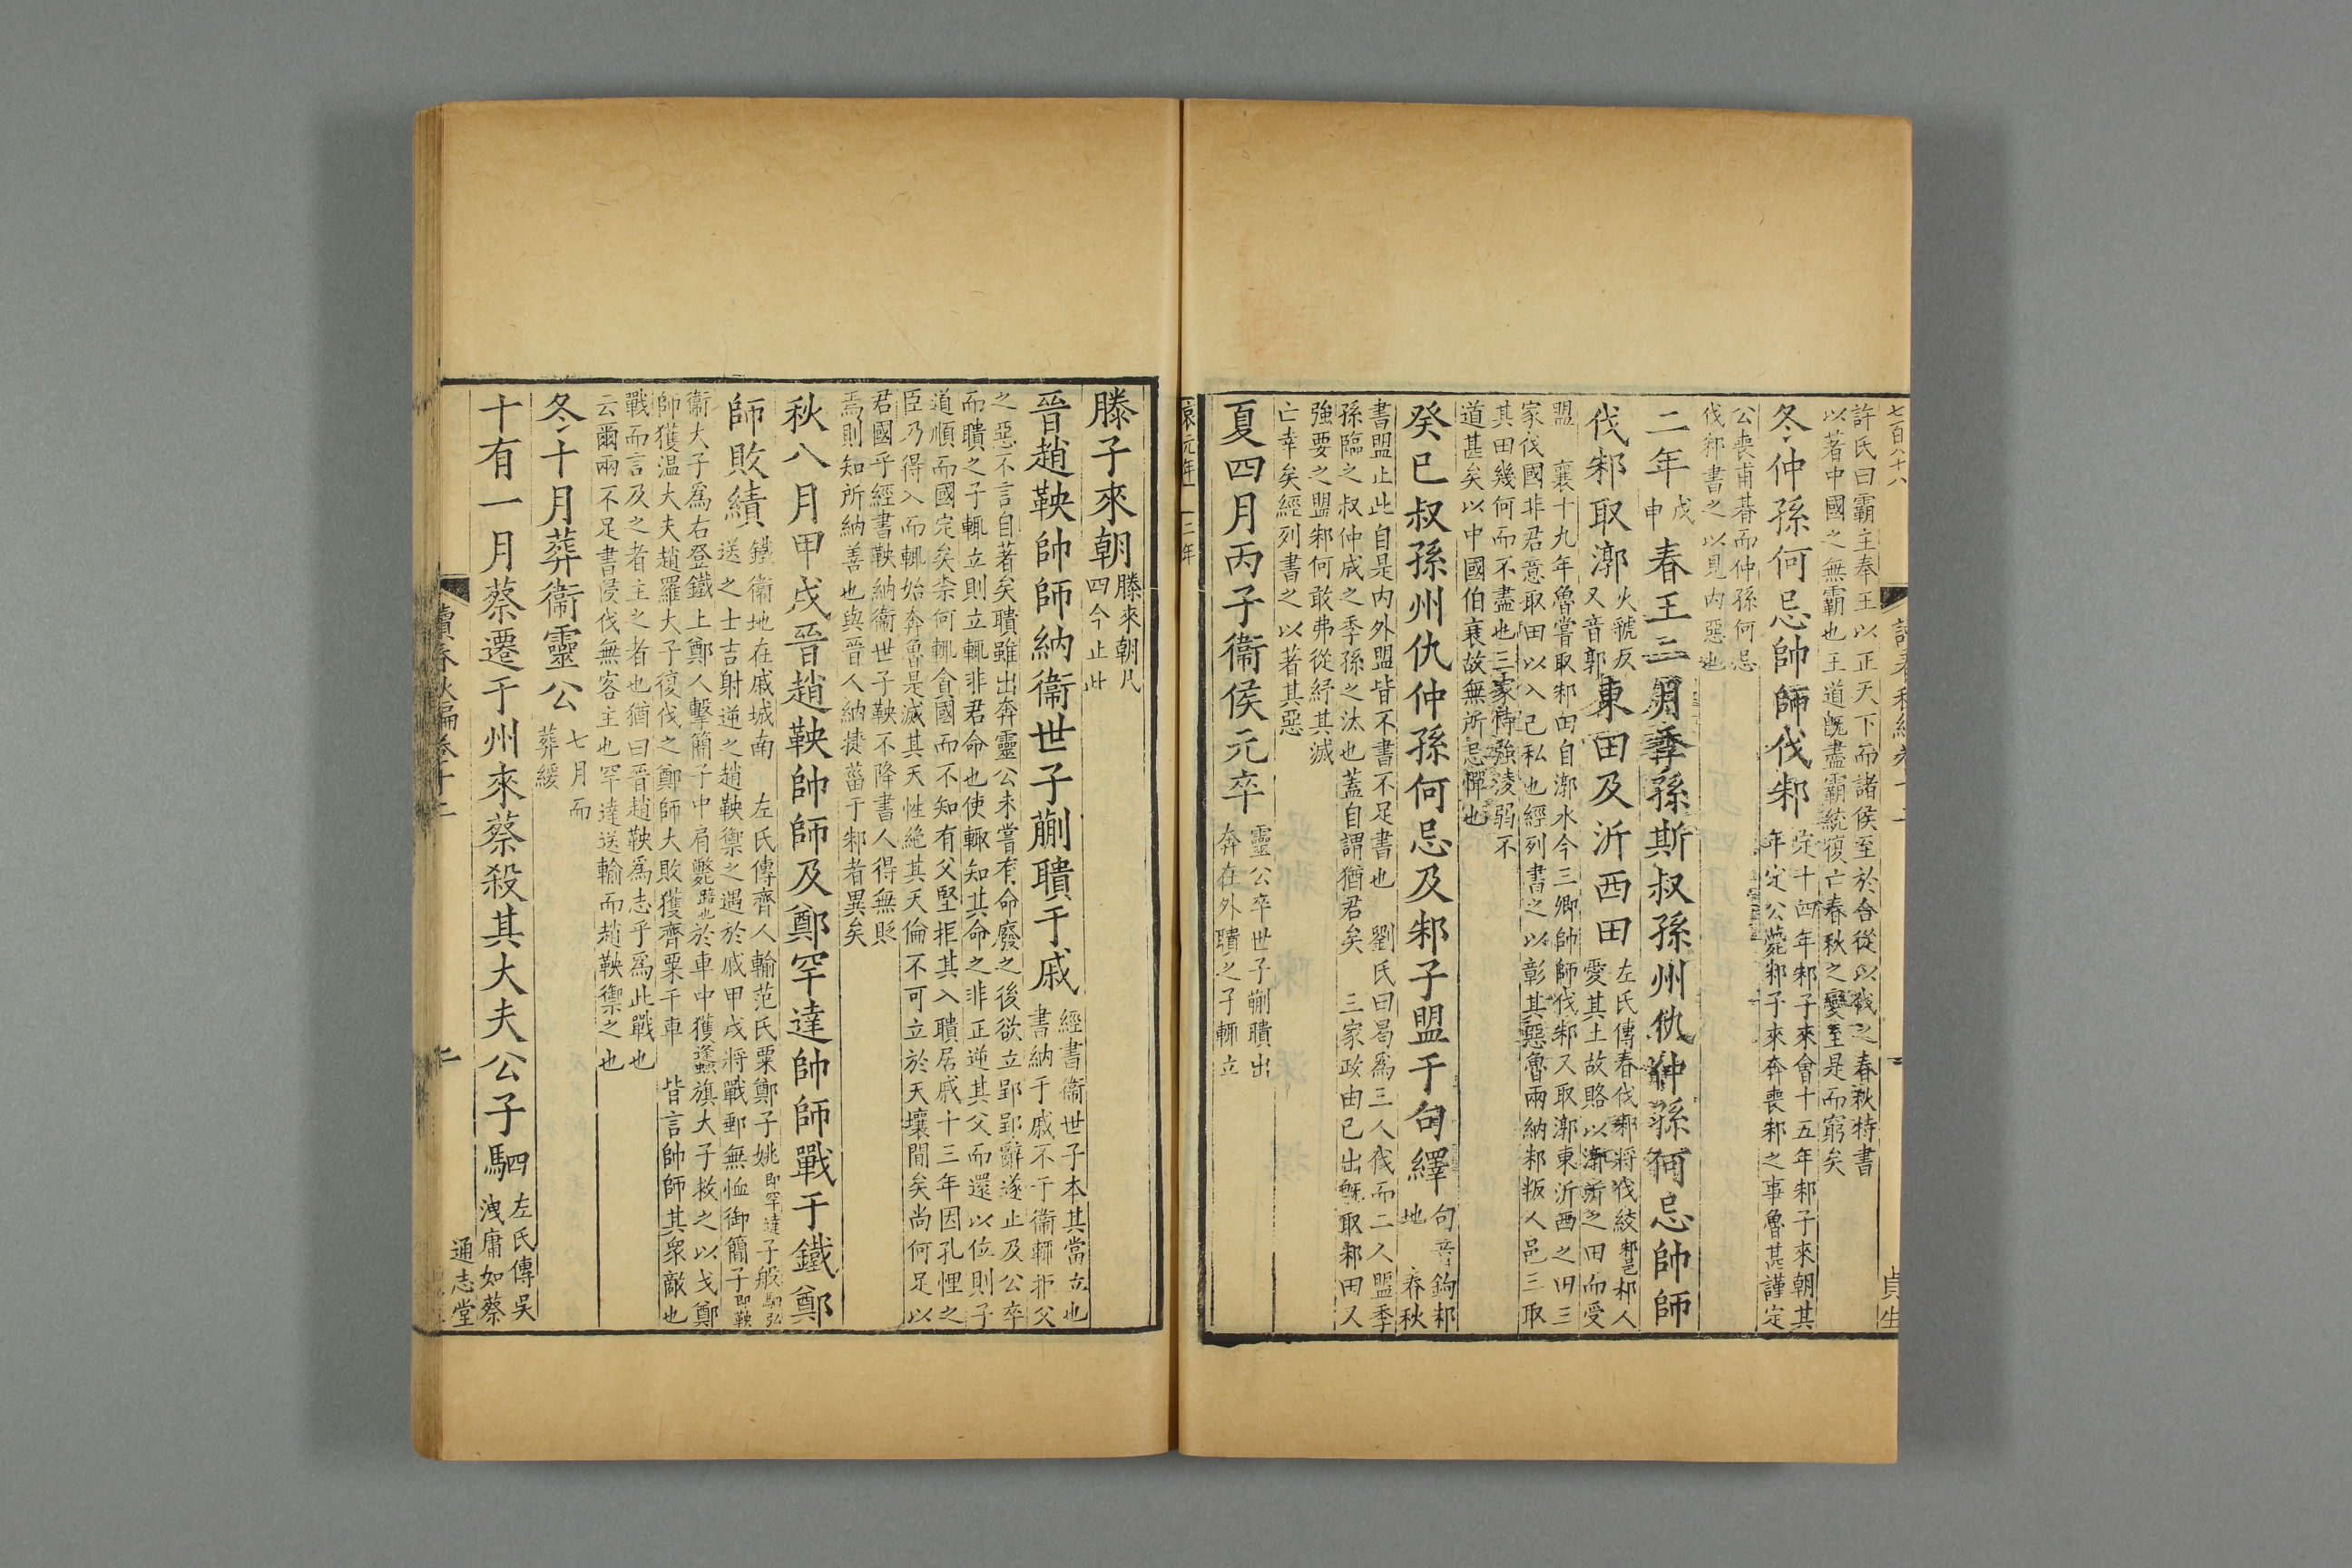 七百八十八
許氏曰霸主奉王以正天下而諸侯至於合從以伐之春秋特書
以著中國之無霸也王道旣盡霸統復亡春秋之變至是而窮矣
冬仲孫何忌帥師伐邾
定十四年邾子來會十五年邾子來朝其
年定公薨邾子來奔喪邾之事魯甚謹定
公喪甫朞而仲孫何忌
伐邾書之以見內惡也
二年
戊
申
春王二月季孫斯叔孫州仇仲孫何忌帥師
伐邾取漷
火虢反
又音郭
東田及沂西田
左氏傳春伐邾將伐絞邾邑邾人
愛其土故賂以漷沂之田而受
盟 襄十九年魯嘗取邾田自漷水今三卿帥師伐邾又取漷東沂西之田三
家伐國非君意取田以入己私也經列書之以彰其惡魯兩納邾叛人邑三取
其田幾何而不盡也三家恃強淩弱不
道甚矣以中國伯衰故無所忌憚也
癸巳叔孫州仇仲孫何忌及邾子盟于句繹
句音鉤邾
地 春秋
書盟止此自是內外盟皆不書不足書也 劉氏曰曷爲三人伐而二人盟季
孫臨之叔仲成之季孫之汰也蓋自謂猶君矣 三家政由已出旣取邾田又
強要之盟邾何敢弗從紓其滅
亡幸矣經列書之以著其惡
夏四月丙子衞侯元卒
靈公卒世子蒯聵出
奔在外聵之子輒立
哀元年 二年
滕子來朝
滕來朝凡
四今止此
晉趙鞅帥師納衞世子蒯聵于戚
經書衞世子本其當立也
書納于戚不于衞輒拒父
之惡不言自著矣聵雖出奔靈公未嘗有命廢之後欲立郢郢辭遂止及公卒
而聵之子輒立則立輒非君命也使輒知其命之非正逆其父而還以位則子
道順而國定矣柰何輒貪國而不知有父堅拒其入聵居戚十三年因孔悝之
臣乃得入而輒始奔魯是滅其天性絶其天倫不可立於天壤間矣尚何足以
君國乎經書鞅納衞世子鞅不降書人得無貶
焉則知所納善也與晉人納捷菑于邾者異矣
秋八月甲戌晉趙鞅帥師及鄭罕達帥師戰于鐵鄭
師敗績
鐵衞地在戚城南 左氏傳齊人輸范氏粟鄭子姚即罕達子般駟弘
送之士吉射逆之趙鞅禦之遇於戚甲戌將戰郵無恤御簡子即鞅
衞大子爲右登鐵上鄭人擊簡子中肩斃踣也於車中獲蠭旗大子救之以戈鄭
師獲溫大夫趙羅大子復伐之鄭師大敗獲齊粟千車 皆言帥師其衆敵也
戰而言及之者主之者也猶曰晉趙鞅爲志乎爲此戰也
云爾兩不足書侵伐無客主也罕達送輸而趙鞅禦之也
冬十月葬衞靈公
七月而
葬緩
十有一月蔡遷于州來蔡殺其大夫公子駟
左氏傳吳
洩庸如蔡
讀春秋編卷十二
通志堂